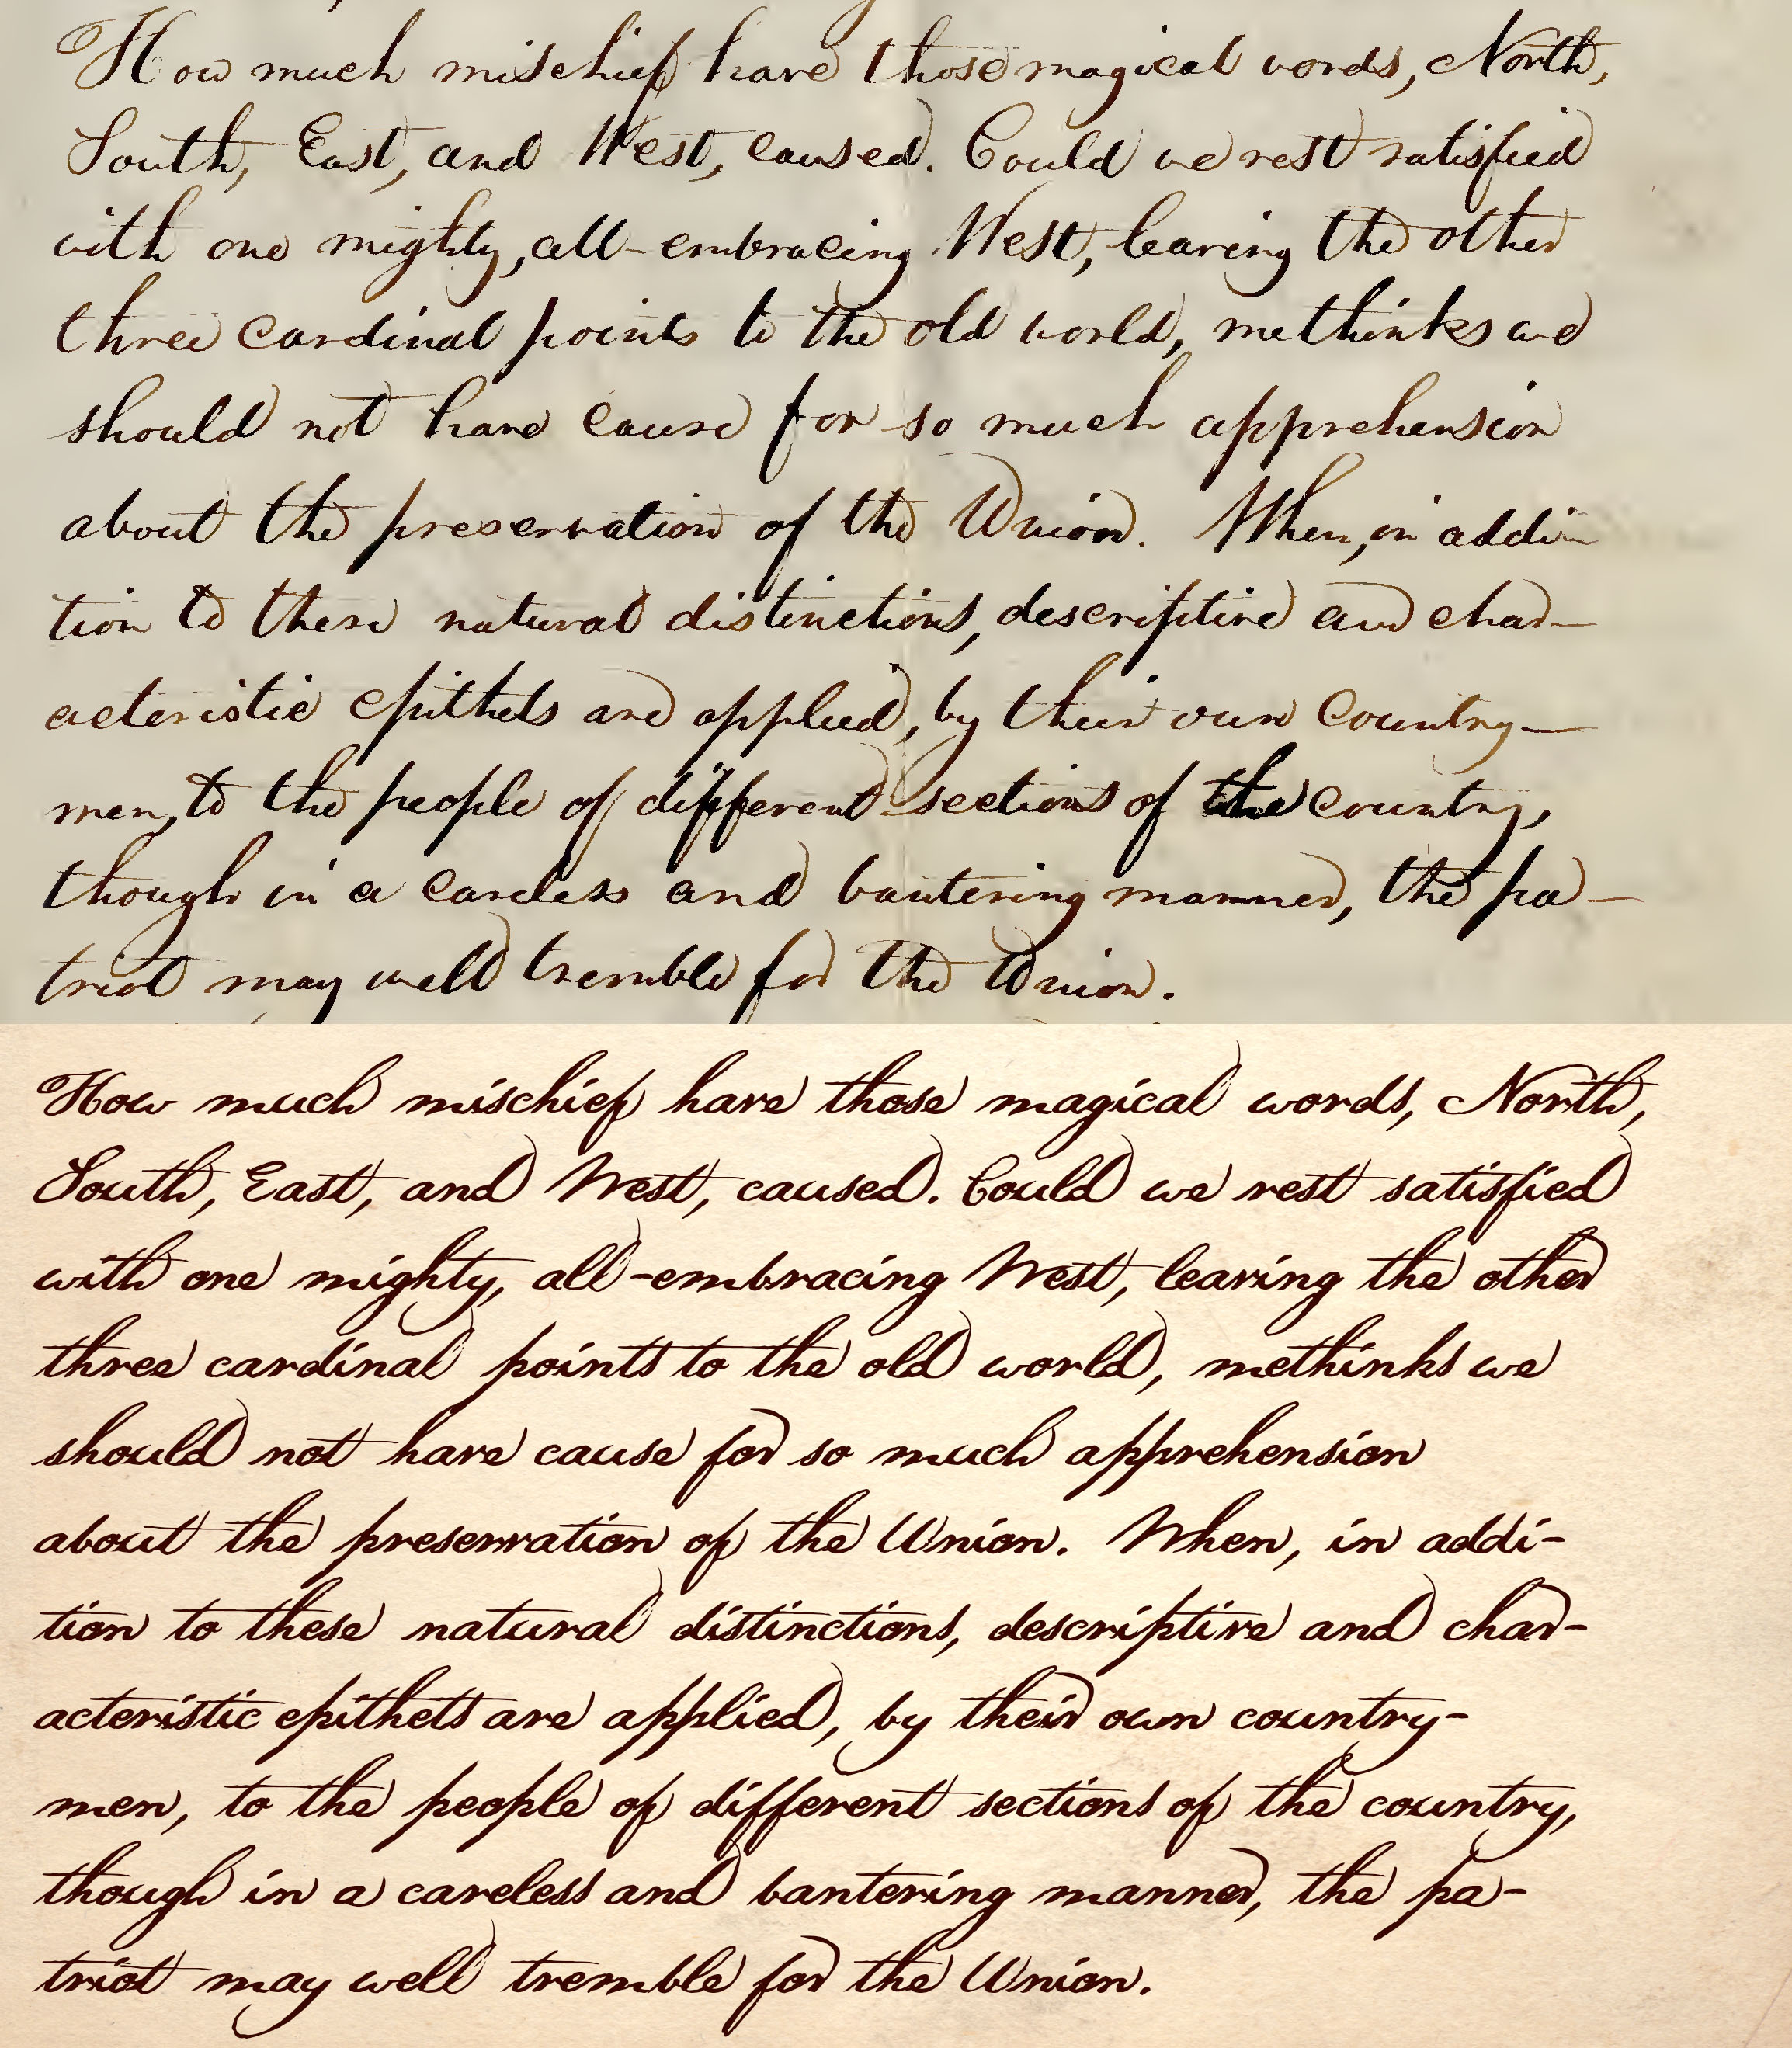 How much mischief have those magical words, North,
South, East, and West, caused. Could we rest satisfied
with one mighty, all-embracing West, leaving the other
three cardinal points to the old world, methinks we
should not have cause for so much apprehension
about the preservation of the Union. When, in addi-
tion to these natural distinctions, descriptive and char-
acteristic epithets are applied, by their own country-
men, to the people of different sections of the country,
though in a careless and bantering manner, the pa-
triot may well tremble for the Union.
How much mischief have those magical words, North,
South, East, and West, caused. Could we rest satisfied
with one mighty, all-embracing West, leaving the other
three cardinal points to the old world, methinks we
should not have cause for so much apprehension
about the preservation of the Union. When, in addi-
tion to these natural distinctions, descriptive and char-
acteristic epithets are applied, by their own country-
men, to the people of different sections of the country,
though in a careless and bantering manner, the pa-
triot may well tremble for the Union.